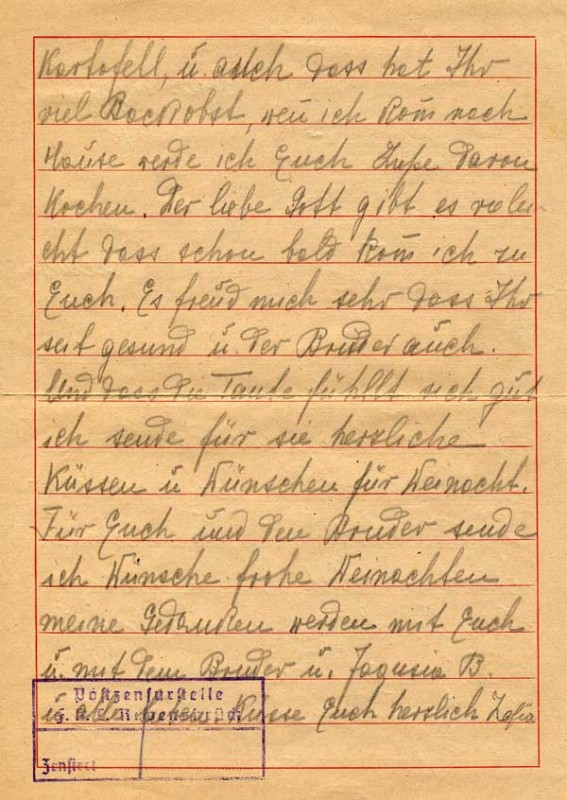 Kartofell, u. auch dass hat Ihr
viel Backobst, wen ich kom̄ nach
Hause werde ich Euch Zupe davon
kochen. Der liebe Gott gibt es vielei-
cht dass schon bald kom̄ ich zu
Euch. Es freud mich sehr dass Ihr
seit gesund u. der Bruder auch.
Und dass die Tante fühllt sich gut
ich sende für sie herzliche
Küssen u Wünschen für Weinacht.
Für Euch und den Bruder sende
ich Wünsche frohe Weinachten
meine Gedanken werden mit Euch
u. mit dem Bruder u. Jagusia B.
u. alle Küsse Euch herzlich Zofia
Postzensurstelle
F. K. L. Ravensbrück
Zensiert